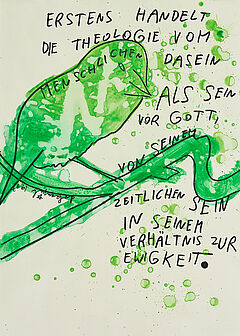 ERSTENS HANDELT
DIE THEOLOGIE VOM
MENSCHLICHEN DASEIN
ALS SEIN
VOR GOTT,
VON SEINEM
ZEITLICHEN SEIN
IN SEINEM
VERHÄLTNIS ZUR
EWIGKEIT.